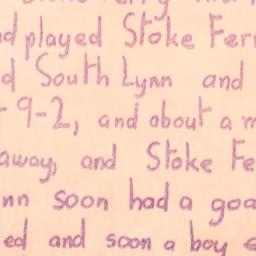 played Stoke
South Lynn and
9-2, and about a
away, and Stoke
soon had a
and soon a boy